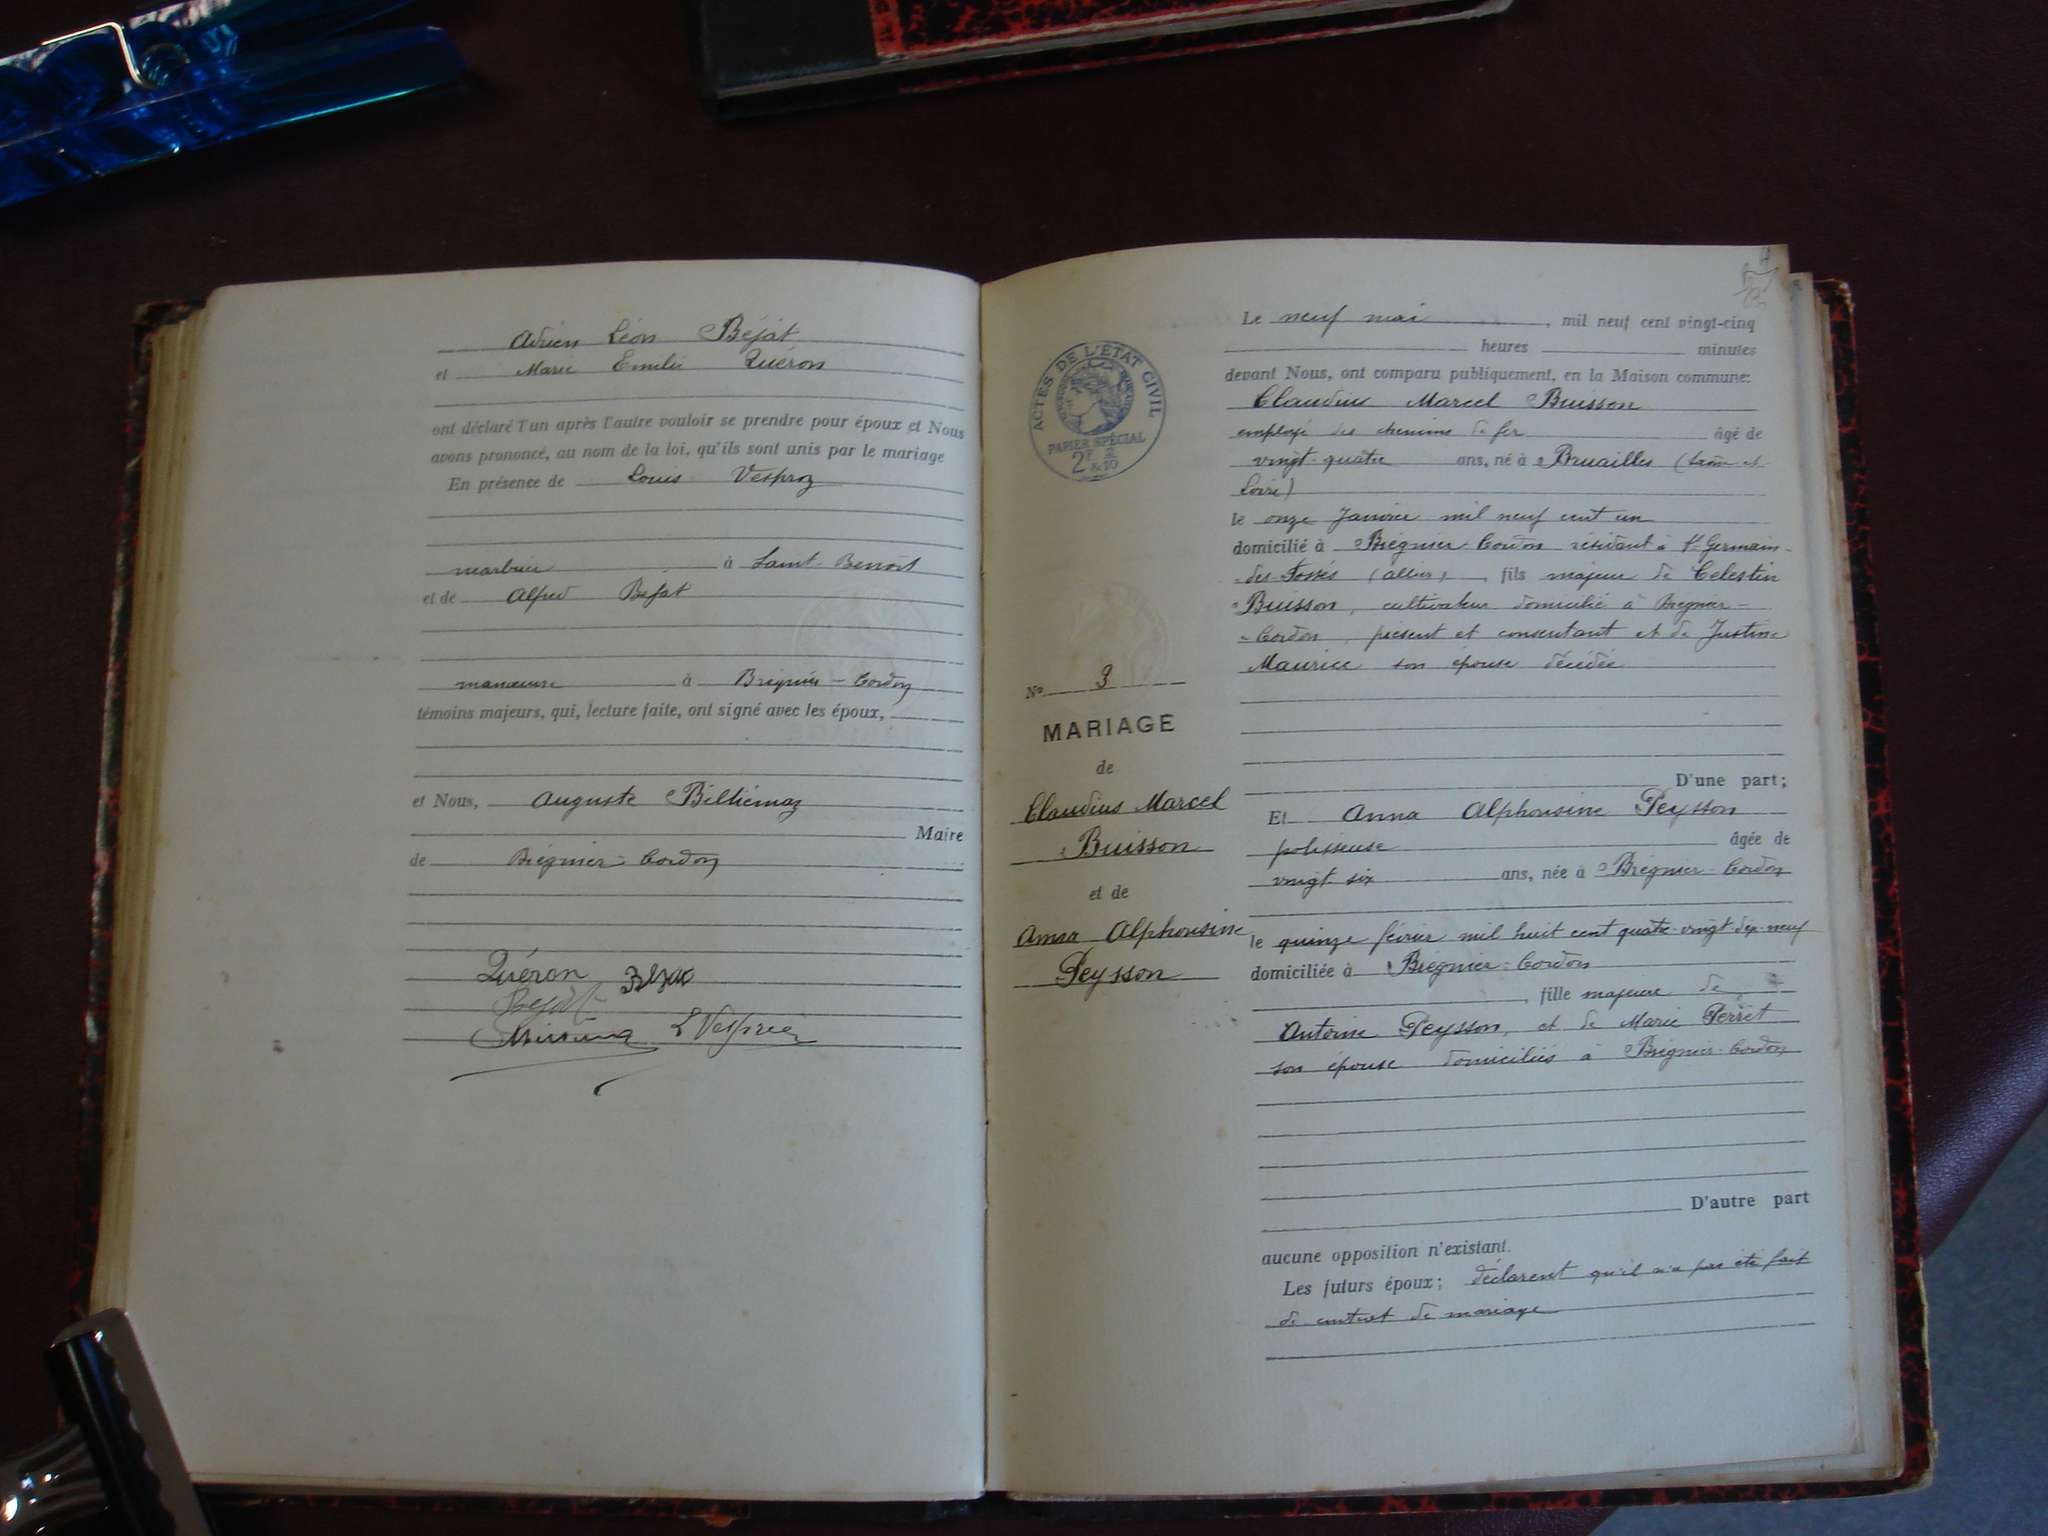 Adrien Léon Béjat
et Marie Emilie Quéron
ont déclaré l'un après l'autre vouloir se prendre pour époux et Nous
avons prononcé, au nom de la loi, qu'ils sont unis par le mariage
En présence de Louis Vesproz
marbrier à Saint-Benoît
et de Alfred Bejat
manœuvre à Brégnier-Cordon
témoins majeurs, qui, lecture faite, ont signé avec les époux,
et Nous, Auguste Billiémaz
Maire
de Brégnier-Cordon
Quéron
ACTES DE L'ÉTAT CIVIL
PAPIER SPÉCIAL
N° 3
MARIAGE
de
Claudius Marcel
Buisson
et de
Anna Alphonsine
Peysson
Le neuf mai, mil neuf cent vingt-cinq
heures minutes
devant Nous, ont comparu publiquement, en la Maison commune:
Claudius Marcel Buisson
employé des chemins de fer âgé de
vingt-quatre ans, né à Bruailles (Saône-et
Loire)
le onze Janvier mil neuf cent un
domicilié à Brégnier-Cordon résidant à St Germain-
des-Fossés (Allier), fils majeur de Celestin
Buisson, cultivateur domicilié à Brégnier-
-Cordon, présent et consentant et de Justine
Maurice son épouse décédée
D'une part;
Et Anna Alphonsine Peysson
polisseuse âgée de
vingt six ans, née à Brégnier-Cordon
le quinze février mil huit cent quatre-vingt-dix-neuf
domiciliée à Brégnier-Cordon
, fille majeure de
Antoine Peysson, et de Marie Perret
son épouse domiciliés à Brégnier-Cordon
D'autre part
aucune opposition n'existant.
Les futurs époux; déclarent qu'il n'a pas été fait
de contrat de mariage